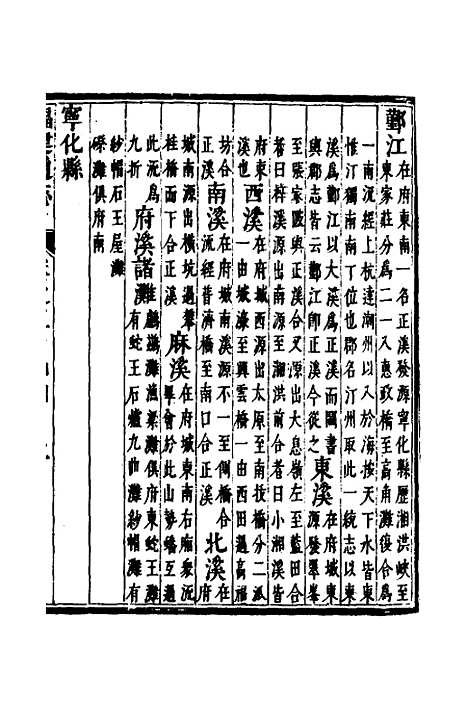 鄞江在府東南一名正溪發源寧化縣歷湘洪峽至
東家莊分為二一入惠政橋至高南灘復合為
一南流經上杭達潮州以入於海按天下水皆東
惟汀獨南南丁位也郡名汀州取此一統志以東
溪為鄞江以大溪為正溪而圖書
與郡志皆云鄞江即正溪今從之東溪在府城東
源發翠峯
至張家陂與正溪合又源出大息嶺左至藍田合
者曰梓溪源出南溪源至湘洪前合者曰小湘溪皆
府東
溪也西溪在府城西源出太原至南拔橋分二派
一由城濠至興雲橋一由西田過高福
坊合
正溪南溪在府城南溪源不一至倒橋合
流經普濟橋至南口合正溪北溪在
府
城南源出橫坑過攀
桂橋而下合正溪麻溪在府城東南有石廟衆流
畢會於此山勢蟠互過
此流為
九折府溪諸灘麒麟灘漁梁灘俱府東蛇王灘
有蛇王石爐九曲灘紗帽灘有
紗帽石王屋灘
磜灘俱府南
寧化縣